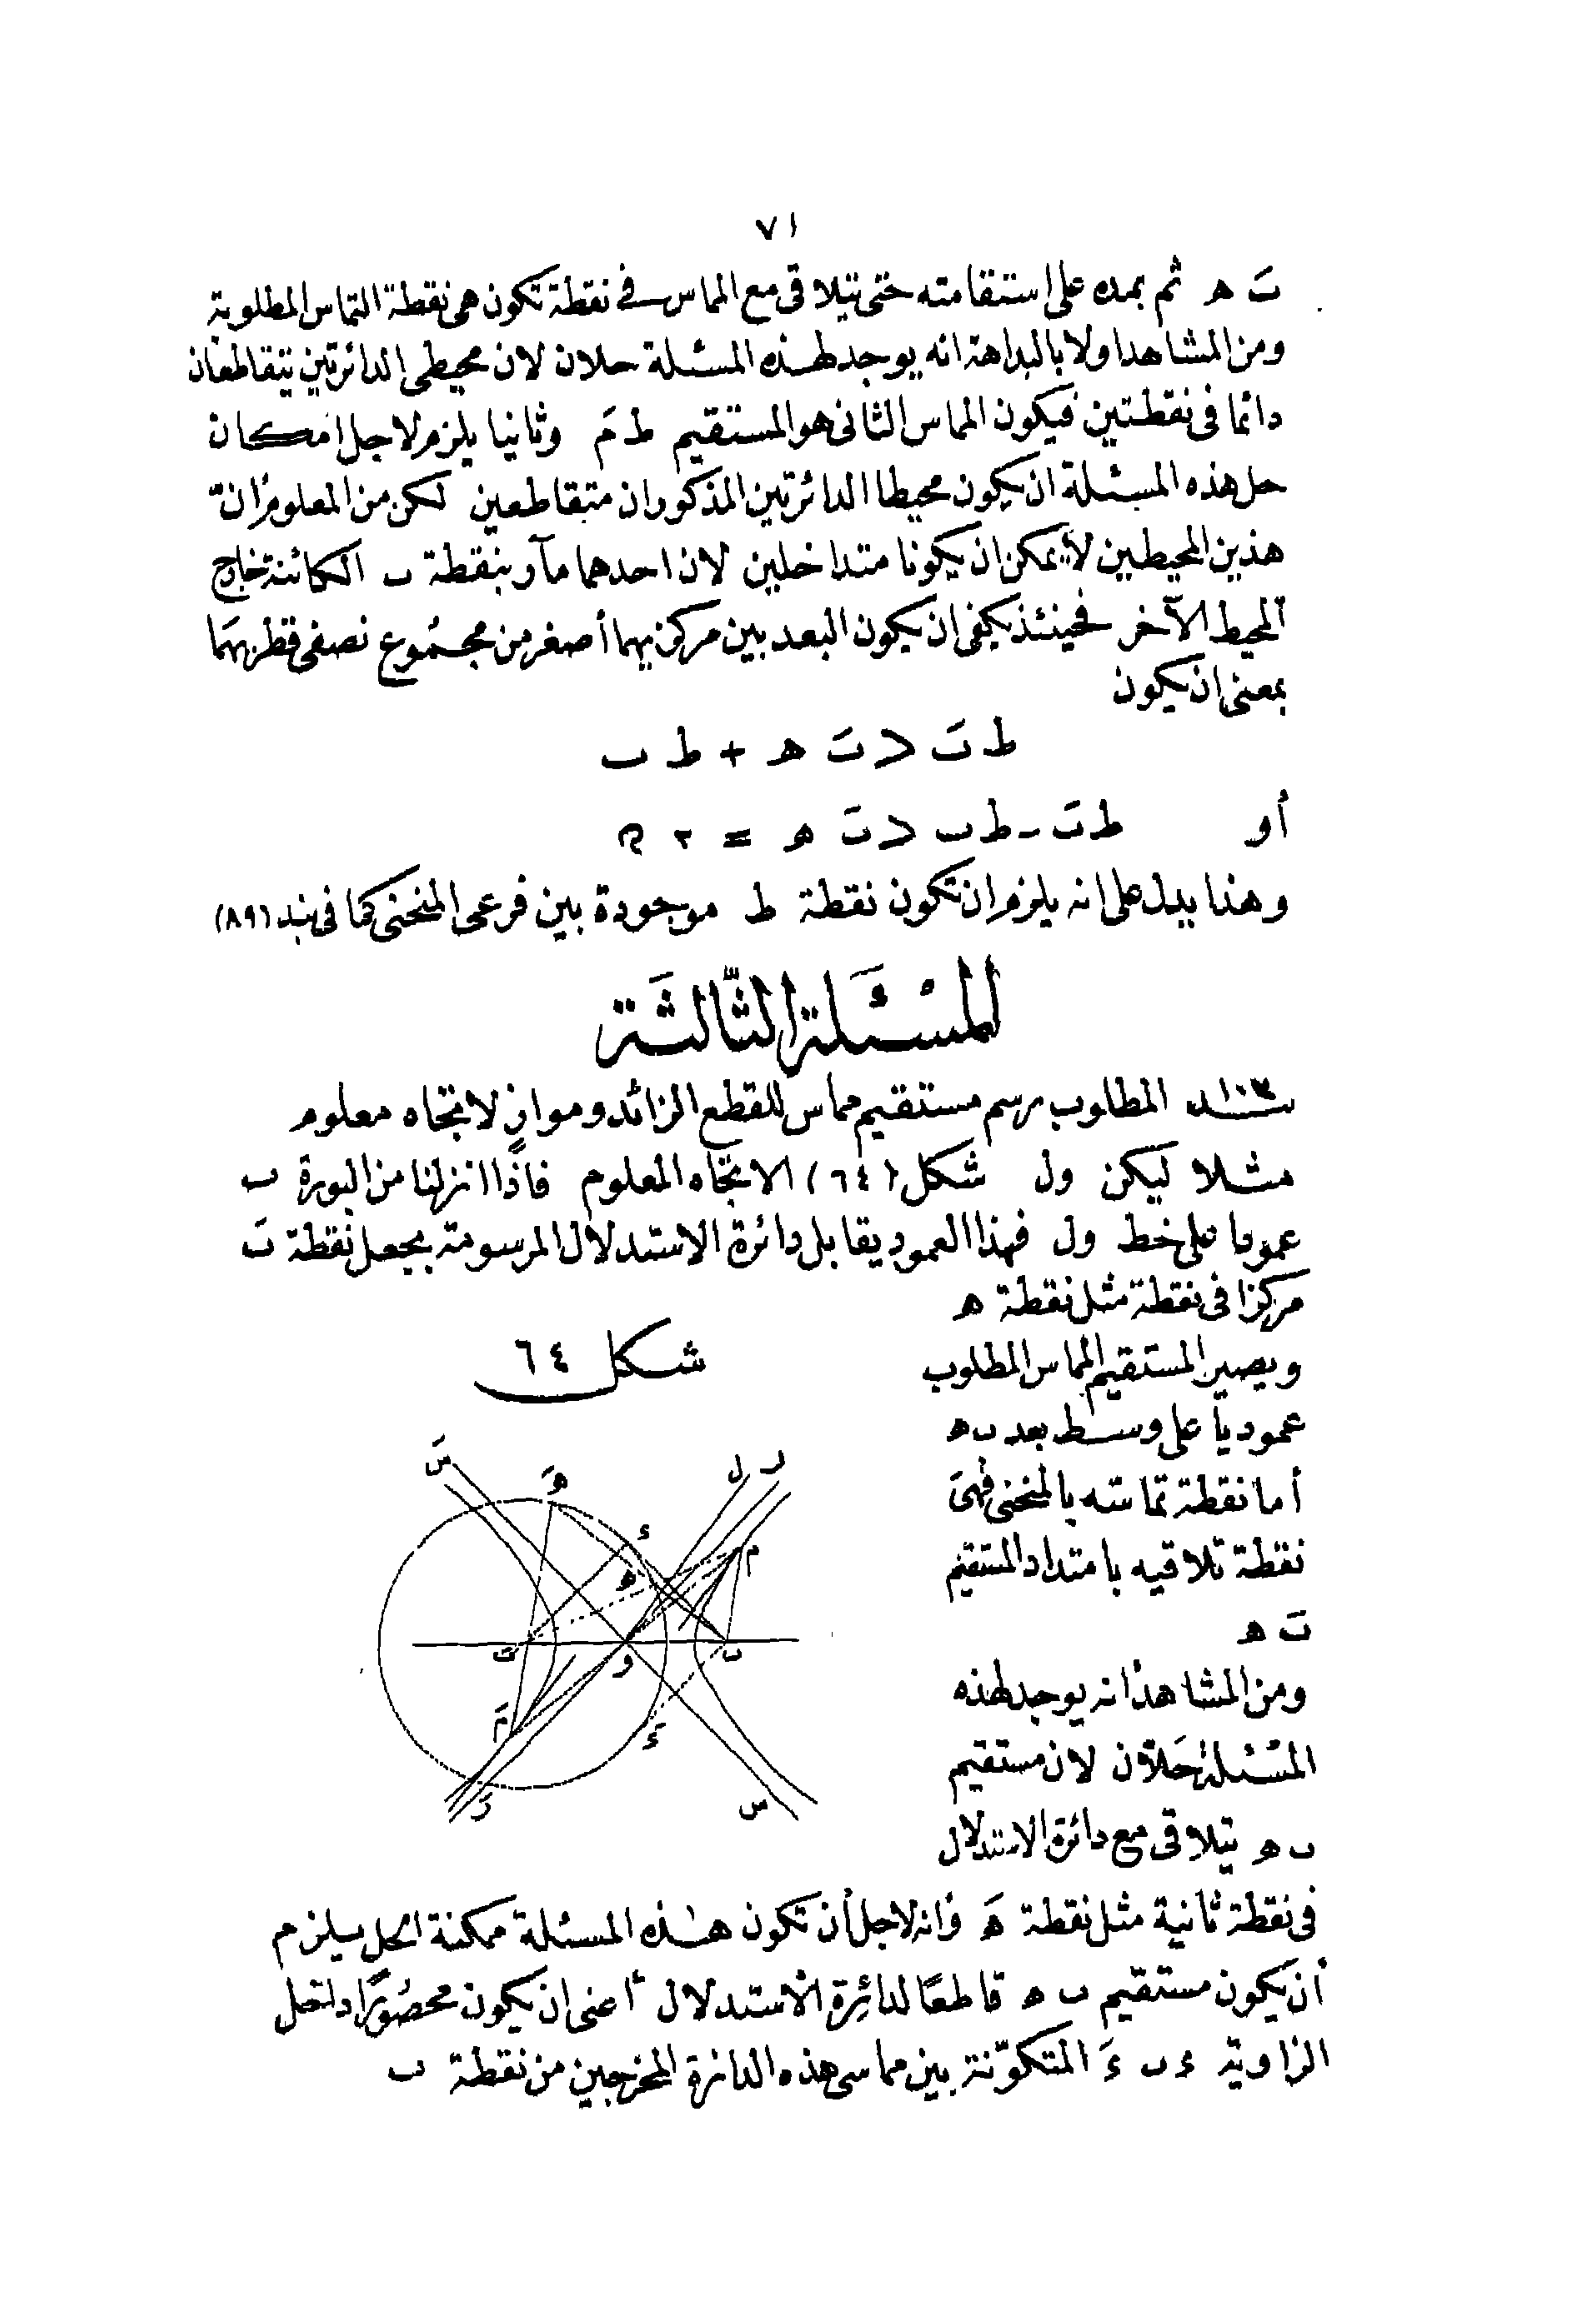 ٧١
بَ ه ثم بمده على استقامته حتى يتلاقى مع المماس فى نقطة تكون هى نقطة التماس المطلوبة
ومن المشاهد اولا بالبداهة انه يوجد لهذه المسئلة حلان لان محيطى الدائرتين يتقاطعان
دائما فى نقطتين فيكون المماس الثانى هو المستقيم ط مَ وثانيا يلزم لاجل امكان
حل هذه المسئلة ان يكون محيطا الدائرتين المذكوران متقاطعين لكن من المعلوم ان
هذين المحيطين لا يمكن ان يكونا متداخلين لان احدهما مآر بنقطة ب الكائنة خارج
المحيط الآخر فحينئذ يكفى ان يكون البعد بين مركزيهما أصغر من مجموع نصفى قطريهما
بمعنى ان يكون
ط بَ < بَ ه + ط ب
أو ط بَ - ط ب < بَ ه = ٢ م
وهذا يدل على انه يلزم ان تكون نقطة ط موجودة بين فرعى المنحنى كما فى بند (٨٩)
المسئلة الثالثة
المطلوب رسم مستقيم مماس للقطع الزائد ومواز لاتجاه معلوم
مثلا ليكن ول شكل (٦٤) الاتجاه المعلوم فاذا انزلنا من البورة ب
عمودا على خط ول فهذا العمود يقابل دائرة الاستدلال المرسومة بجعل نقطة بَ
مركزا فى نقطة مثل نقطة ه
ويصير المستقيم المماس المطلوب
عموديا على وسط بعد ب ه
أما نقطة تماسه بالمنحنى فهى
نقطة تلاقيه بامتداد المستقيم
بَ ه
ومن المشاهد انه يوجد لهذه
المسئلة حلان لان مستقيم
ب ه يتلاقى مع دائرة الاستدلال
شكل ٦٤
سَ
هَ
ل
ر
ء
م
ه
بَ
و
ب
مَ
ءَ
رَ
س
فى نقطة ثانية مثل نقطة هَ وانه لاجل أن تكون هذه المسئلة ممكنة الحل يلزم
أن يكون مستقيم ب ه قاطعا لدائرة الاستدلال أعنى ان يكون محصورا داخل
الزاوية ء ب ءَ المتكونة بين مماسى هذه الدائرة المخرجين من نقطة ب